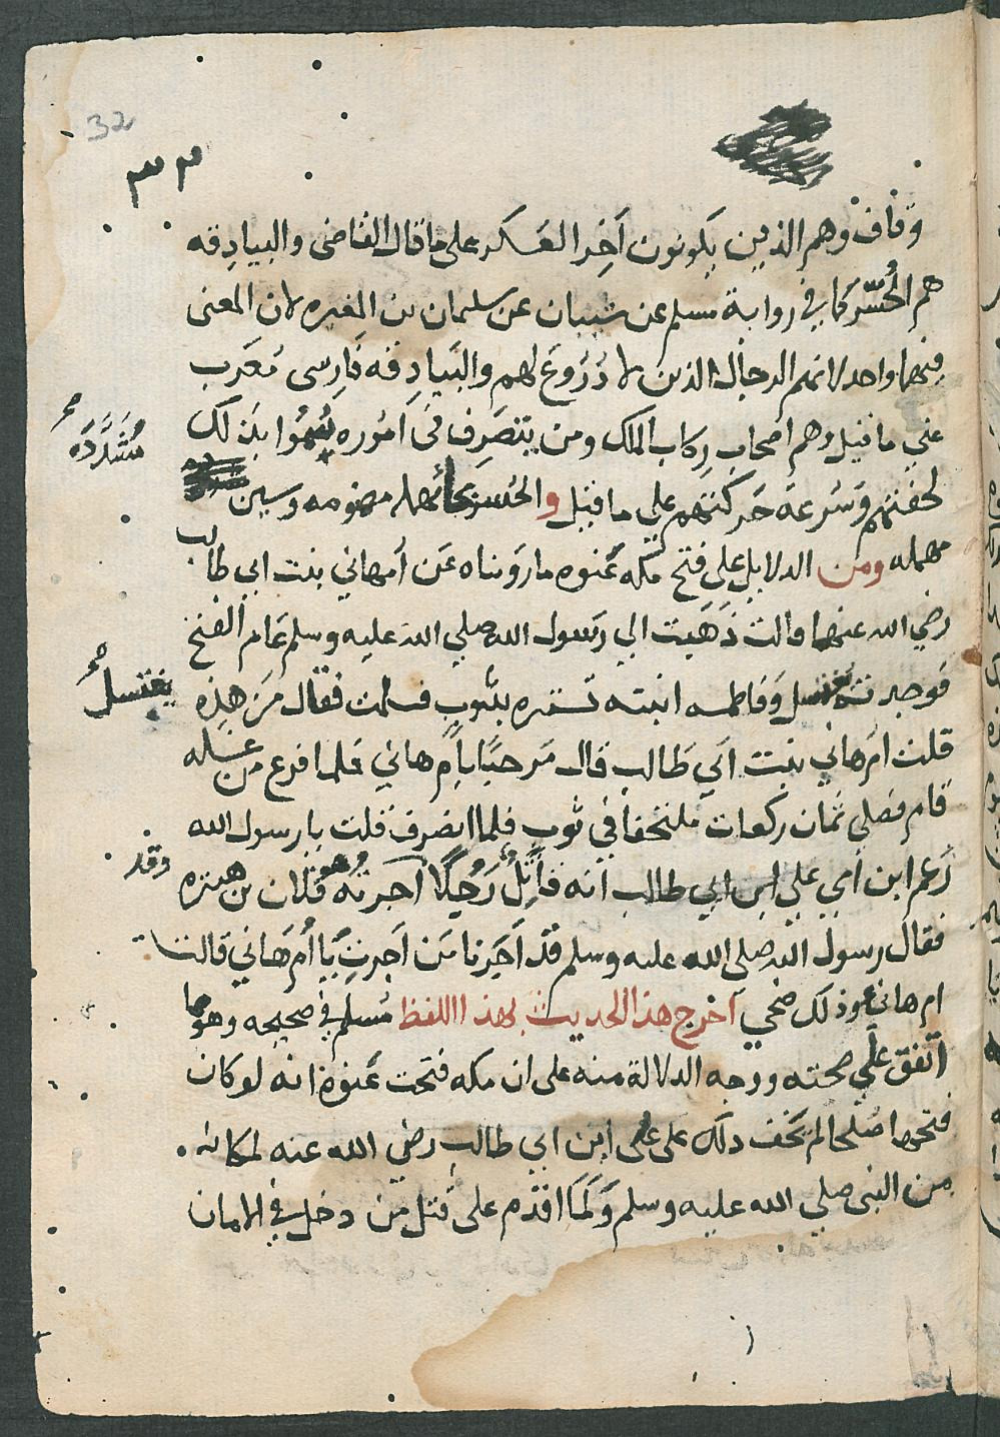 32
٣٣
وقاف وهم الذين يكونون آخر العسكر على ما قال القاضى والبيادقه
هم الحُسّر كما في رواية مسلم عن شيبان عن سلمان بن المغيره لان المعنى
فيهما واحد لانهم الرجال الذين لا دُرُوع لهم والبَيادِقه فارسى مُعَرب
على ما قيل وهم اصحاب ركاب الملك ومن يتصرف فى اموره سُمُّوا بذلك
مُشَدَّدَه صح
لخفتهم وسُرعة حركتهم على ما قيل والحُسر بحاء مهمله مضمومه وسين
مهمله ومن الدلايل على فتح مكه عنوه ما رويناه عن أم هاني بنت ابي طالب
رضي الله عنها قالت ذَهَبت الي رسول الله صلي الله عليه وسلم عام الفتح
فوجدته يغتسل وفاطمه ابنته تستره بثوب فسلمت فقال من هذه
يغتسل صح
قلت ام هاني بنت ابي طالب قال مرحبًا بام هاني فلما افرع من غسله
قام فصلي ثمان ركعات ملتحفا في ثوب فلما انصرف قلت يا رسول الله
زعم ابن امي علي ابن ابي طالب انه قاتلٌ رجلًا آجرته هو فلان بن هبيره
وقد
فقال رسول الله صلى الله عليه وسلم قد آجَرنا مَن آجرتِ يا أم هاني قالت
ام هاني وذلك ضحي آخرج هذا الحديث بهذا اللفظ مُسلم في صحيحه وهو ما
اتفق على صحته ووجه الدلالة منه على ان مكه فتحت عنوه انه لو كان
فتحها صُلحا لم يخف ذلك على علي ابن ابي طالب رضي الله عنه لمكانه
من النبى صلي الله عليه وسلم وَلَمَا اقدم على قتل من دخل في الامان